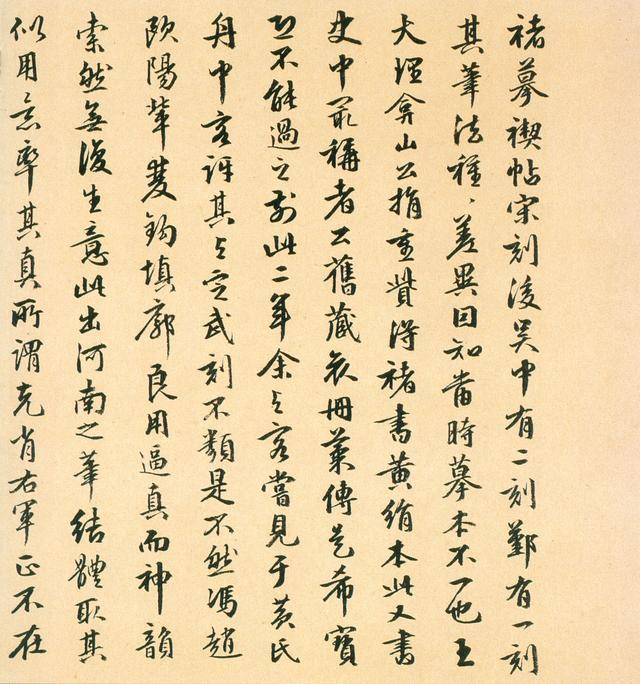 褚摹禊帖宋刻後吴中有二刻鄞有一刻
其筆法種、差異因知當時摹本不一也王
大理弇山公捐重貲得褚書黄絹本此又書
史中最稱者公舊藏哀冊傳是希寶
恐不能過之別此二年余與客嘗見于黄氏
舟中客訝其與定武刻不類是不然馮趙
歐陽輩雙鈎填廓良用逼真而神韻
索然無復生意此出河南之筆結體取其
似用意率其真所謂克肖右軍正不在